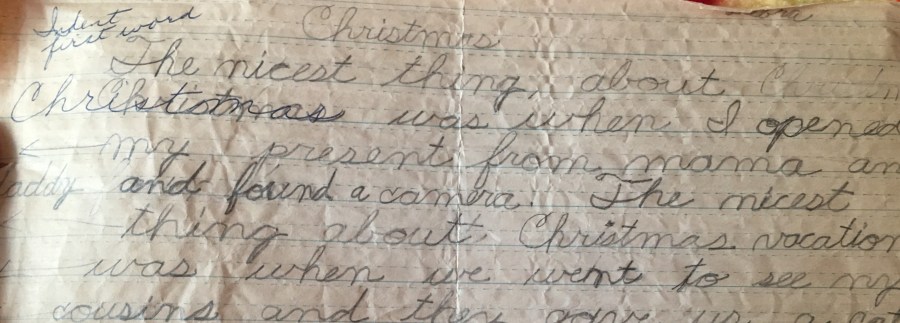 Indent
first word
Christmas
The nicest thing, about
Christmas was when I opened
my present from mama an
addy and found a camera. The nicest
thing about Christmas vacation
was when we went to see my
cousins and they gave us a